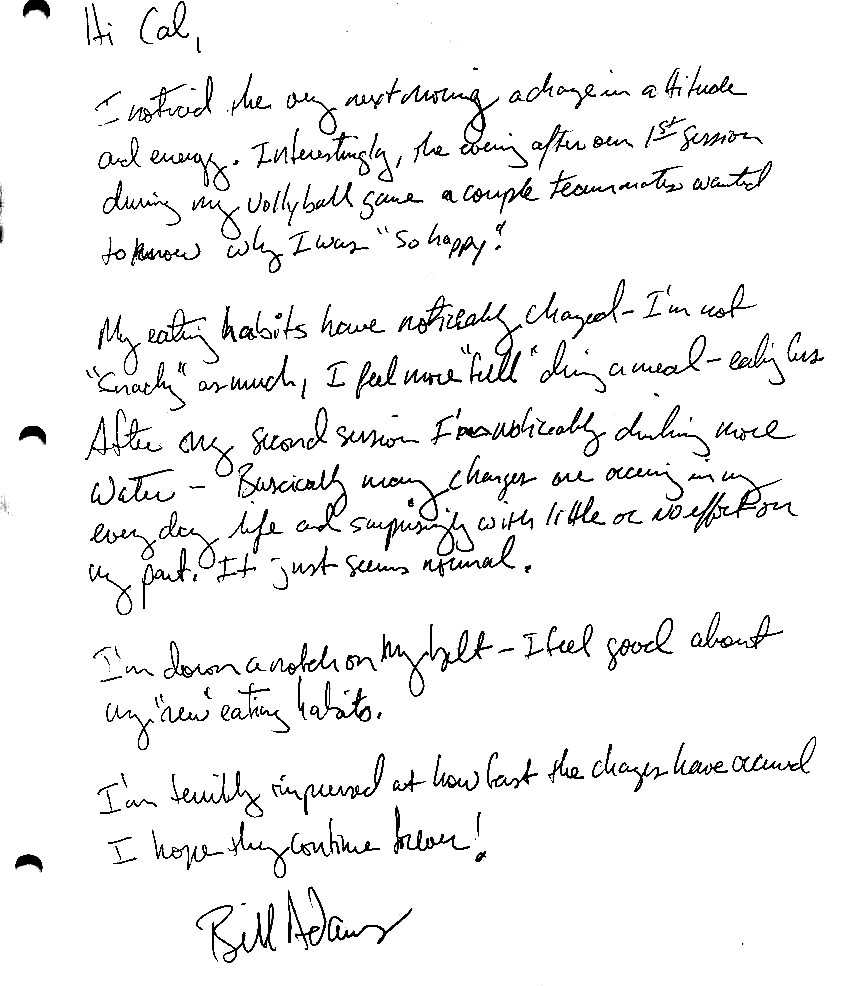 Hi Cal,
I noticed the very next morning a change in attitude
and energy. Interestingly, the evening after our 1st session
during my vollyball game a couple teammates wanted
to know why I was "so happy".
My eating habits have noticeably changed - I'm not
"Snacky" as much, I feel more "full" during a meal - eating less
After my second session I'm noticeably drinking more
Water - Basically many changes are occuring in my
every day life and surprisingly with little or no effort on
my part. It just seems normal.
I'm down a notch on my belt - I feel good about
my "new" eating habits.
I'm terribly impressed at how fast the changes have occured
I hope they continue forever!
Bill Adams